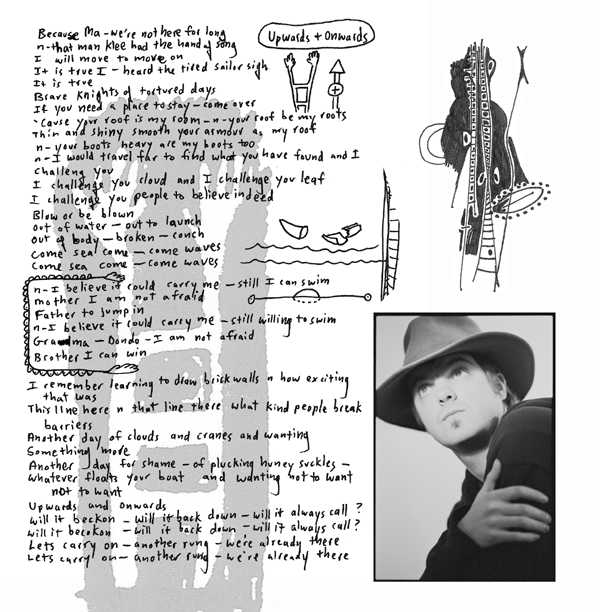 Upwards + Onwards
Because Ma - we're not here for long
n - that man Klee had the hand of song
I will move to move on
It is true I - heard the tired sailor sigh
It is true
Brave Knights of tortured days
If you need a place to stay - come over
'Cause your roof is my room - n - your roof be my roots
Thin and shiny smooth your armour as my roof
n - your boots heavy are my boots too
n - I would travel far to find what you have found and I
challeng you
I challenge you cloud and I challenge you leaf
I challenge you people to believe indeed
Blow or be blown
Out of water - out to launch
Out of body - broken - conch
Come sea come - come waves
Come sea come - come waves
n - I believe it could carry me - still I can swim
mother I am not afraid
Father to jump in
n - I believe it could carry me - still willing to swim
Grandma - Dondo - I am not afraid
Brother I can win
I remember learning to draw brick walls n how exciting
that was
This line here n that line there what kind people break
barriers
Another day of clouds and cranes and wanting
Something more
Another day for shame - of plucking huney suckles -
whatever floats your boat and wanting not to want
not to want
Upwards and onwards
will it beckon - will it back down - will it always call?
will it beckon - will it back down - will it always call?
Lets carry on - another rung - we're already there
Lets carry on - another rung - we're already there